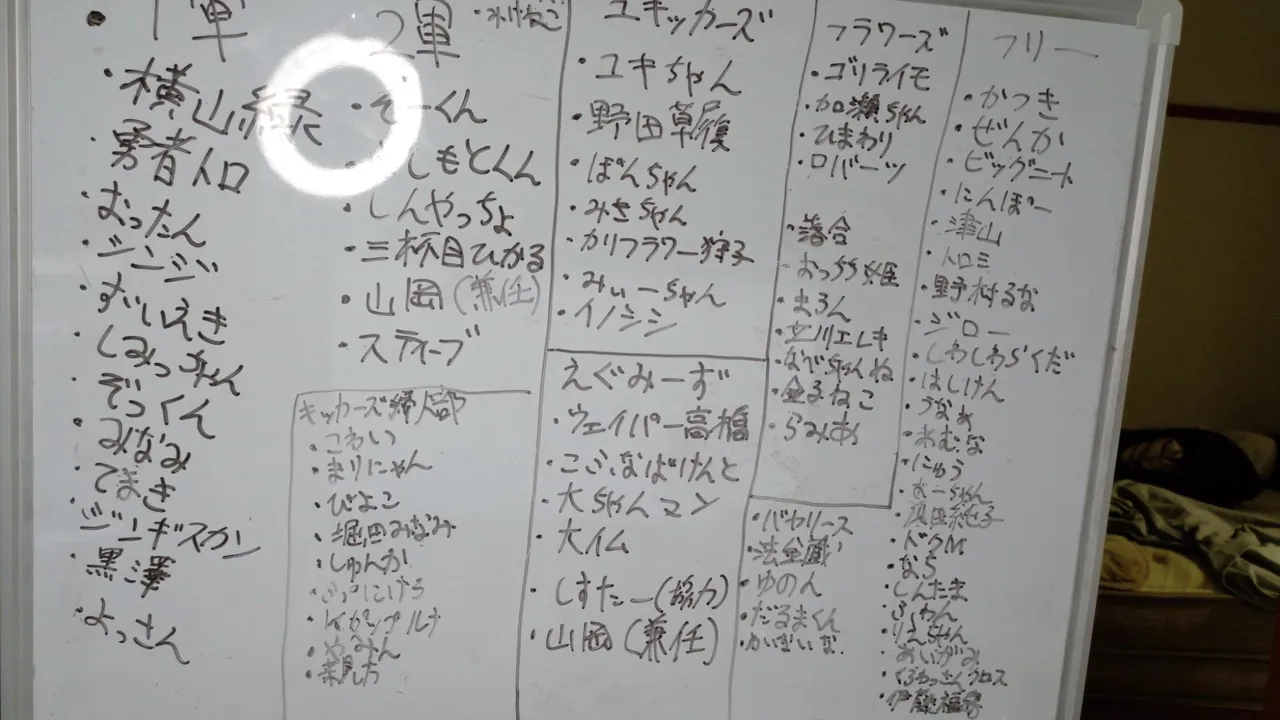 ・1軍
・横山緑
・勇者トロ
・おったん
・ジンジ
・ずいえき
・しみっちゃん
・ぞっくん
・みなみ
・てまき
・ジンギスカン
・黒澤
・よっさん
2軍
・ぞーくん
しもとくん
・しんやっちょ
・三杯目ひかる
・山岡(兼任)
・スティーブ
キッカーズ婦人部
・こわい
・まりにゃん
・ぴよこ
・堀田みなみ
・しゅんか
・やみん
ユキッカーズ
・ユキちゃん
・野田草履
・ぽんちゃん
・みきちゃん
・カリフラワー狩子
・みぃーちゃん
・イノシシ
えぐみーず
・ウェイパー高橋
・こぶなばけんと
・大ちゃんマン
・大イム
・しすたー(協力)
・山岡(兼任)
フラワーズ
・ゴリライモ
・加瀬ちゃん
・ひまわり
・ロバーツ
・落合
・まろん
・立川エレキ
・なべちゃんね
・金子ねこ
・らみあ
・バカリース
・法金蔵
・ゆのん
・だるまくん
フリー
・かつき
・ぜんか
・ビッグニート
・にんぽー
・津山
・トロミ
・野村るな
・ジロー
・しわしわらくだ
・はしけん
・うなぎ
・おむな
・にゅう
・おーちゃん
・ドクM
・なら
・しんたま
・ふわん
・りえちゃん
・あいがみ